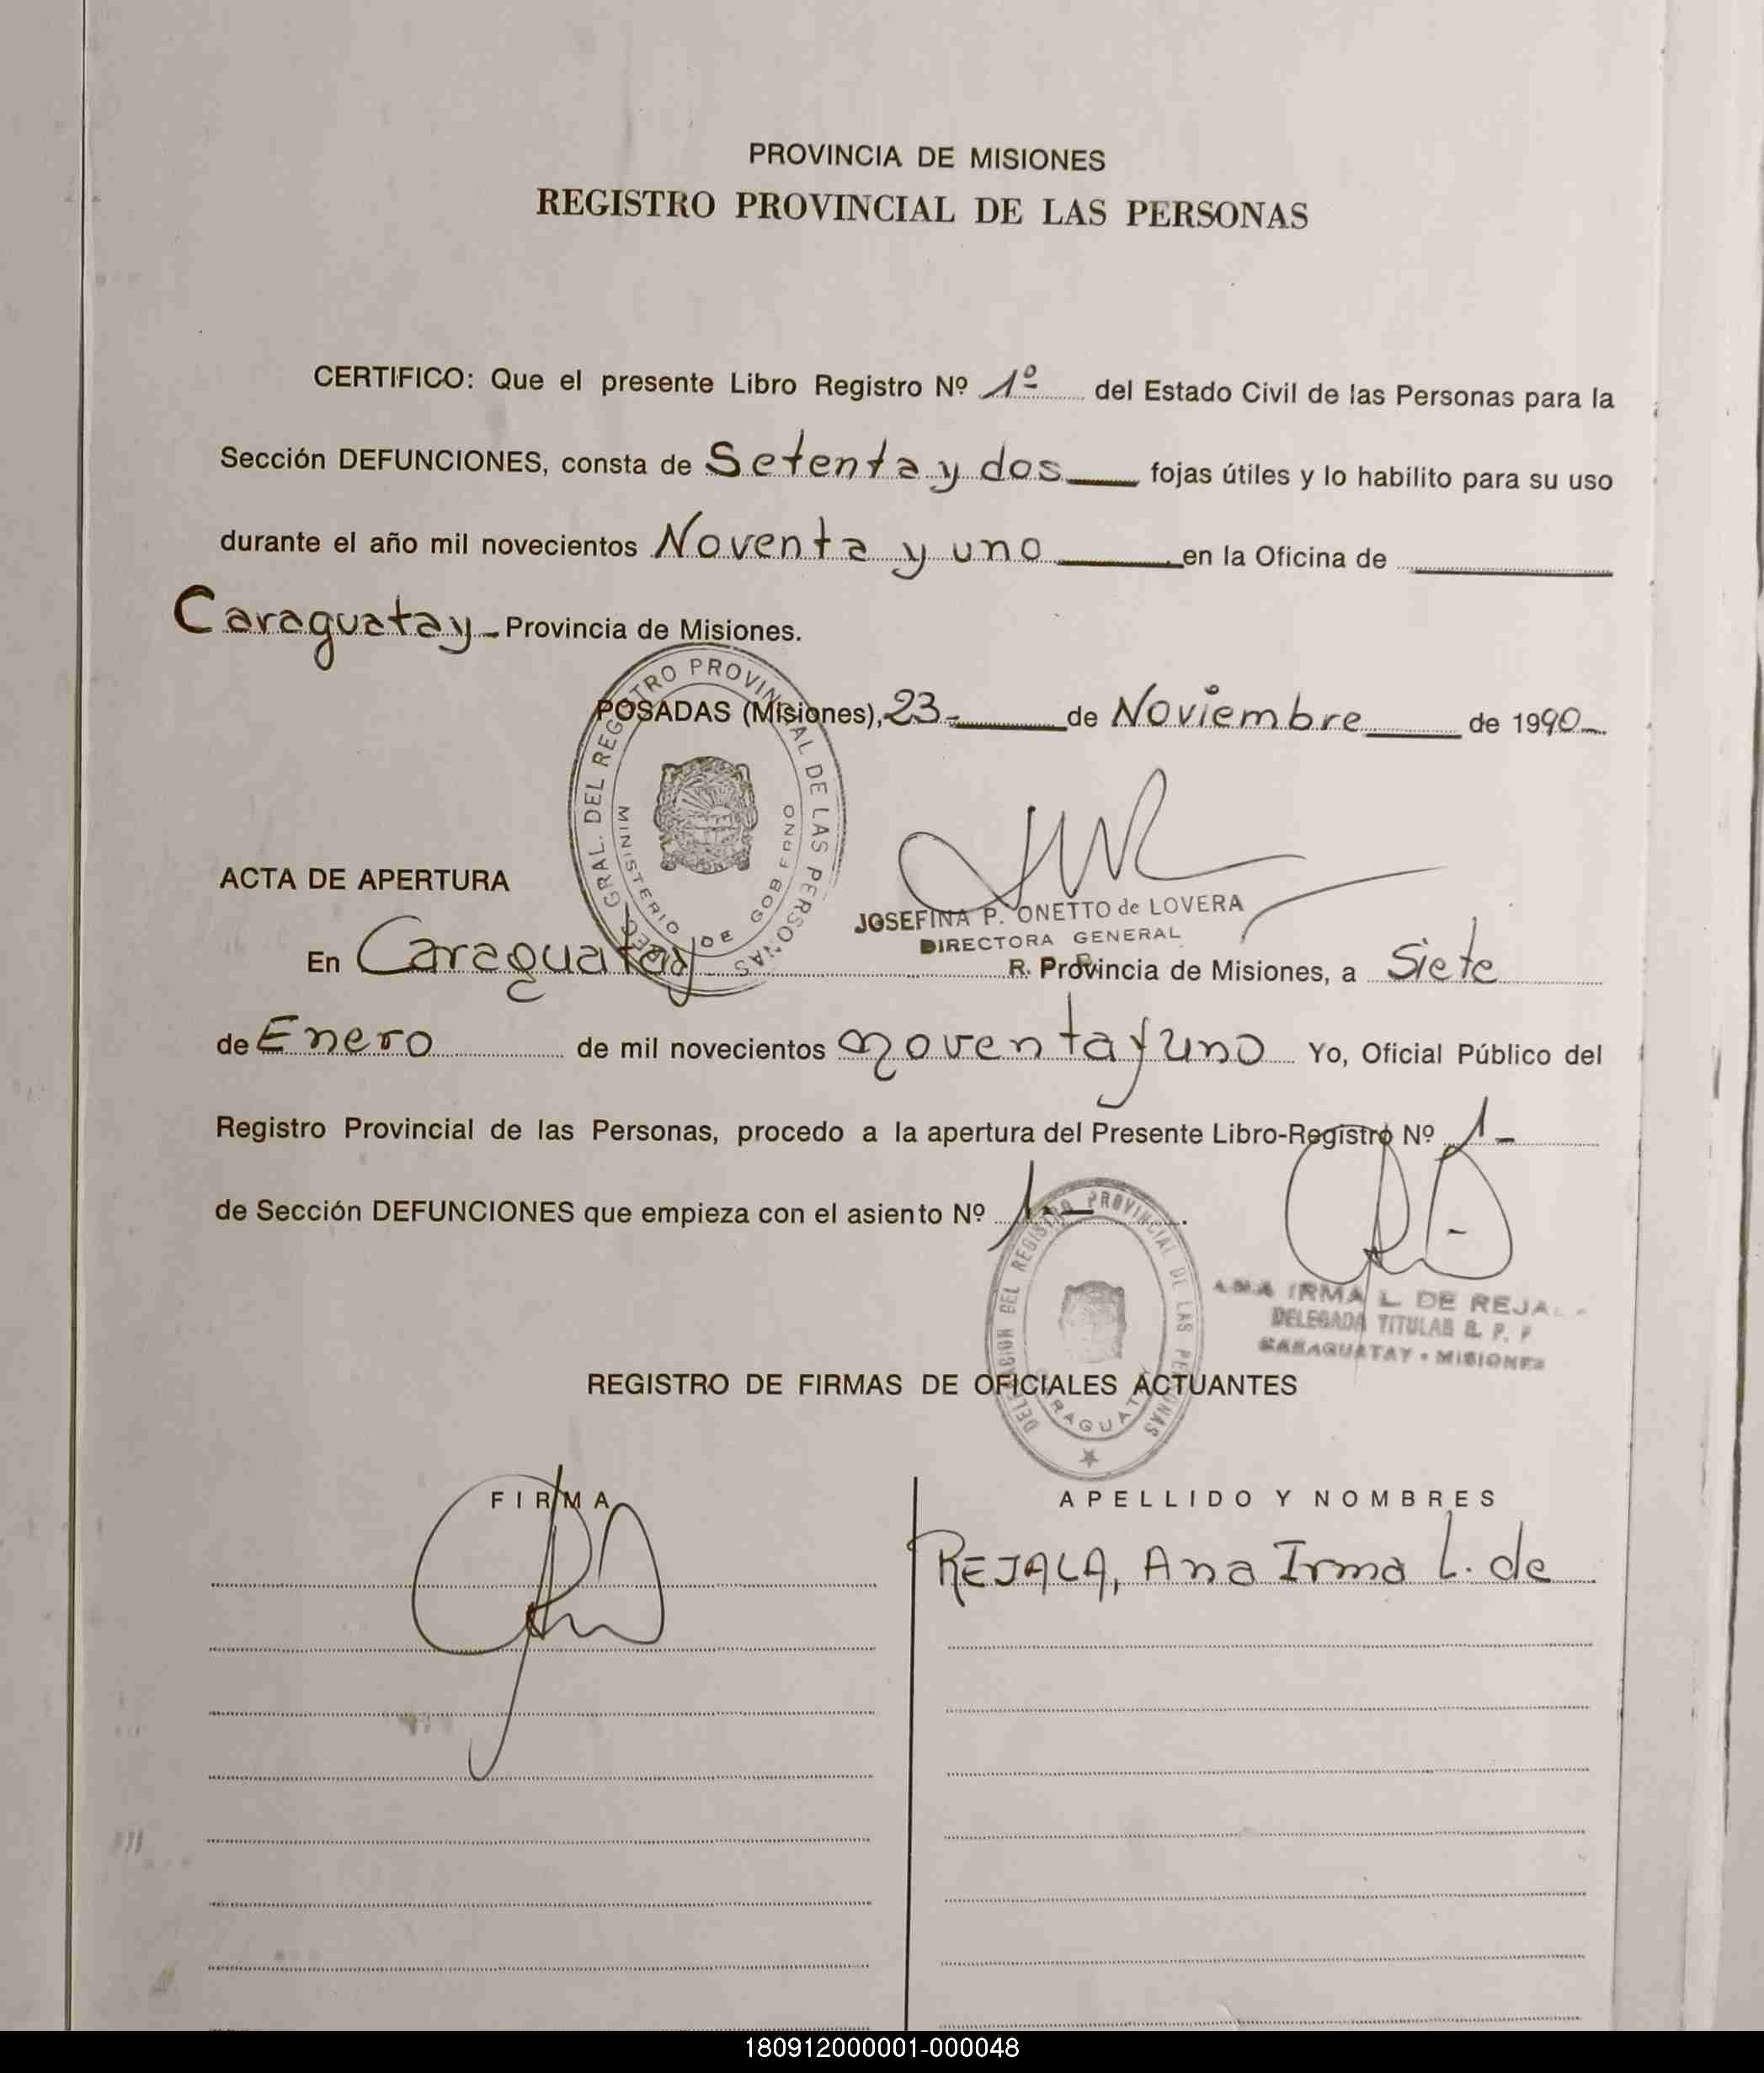 PROVINCIA DE MISIONES
REGISTRO PROVINCIAL DE LAS PERSONAS
CERTIFICO: Que el presente Libro Registro Nº 1º del Estado Civil de las Personas para la
Sección DEFUNCIONES, consta de Setenta y dos fojas útiles y lo habilito para su uso
durante el año mil novecientos Noventa y uno en la Oficina de
Caraguatay - Provincia de Misiones.
POSADAS (Misiones), 23- de Noviembre de 1990-
GRAL. DEL REGISTRO PROVINCIAL DE LAS PERSONAS
MINISTERIO DE GOBIERNO
JOSEFINA P. ONETTO de LOVERA
DIRECTORA GENERAL
R. P.
ACTA DE APERTURA
En Caraguatay Provincia de Misiones, a Siete
de Enero de mil novecientos noventa y uno Yo, Oficial Público del
Registro Provincial de las Personas, procedo a la apertura del Presente Libro-Registro Nº 1-
de Sección DEFUNCIONES que empieza con el asiento Nº 1.-
DELEGACION DEL REGISTRO PROVINCIAL DE LAS PERSONAS
CARAGUATAY
ANA IRMA L. DE REJALA
DELEGADA TITULAR R. P. P
CARAGUATAY - MISIONES
REGISTRO DE FIRMAS DE OFICIALES ACTUANTES
FIRMA
APELLIDO Y NOMBRES
REJALA, Ana Irma L. de
180912000001-000048